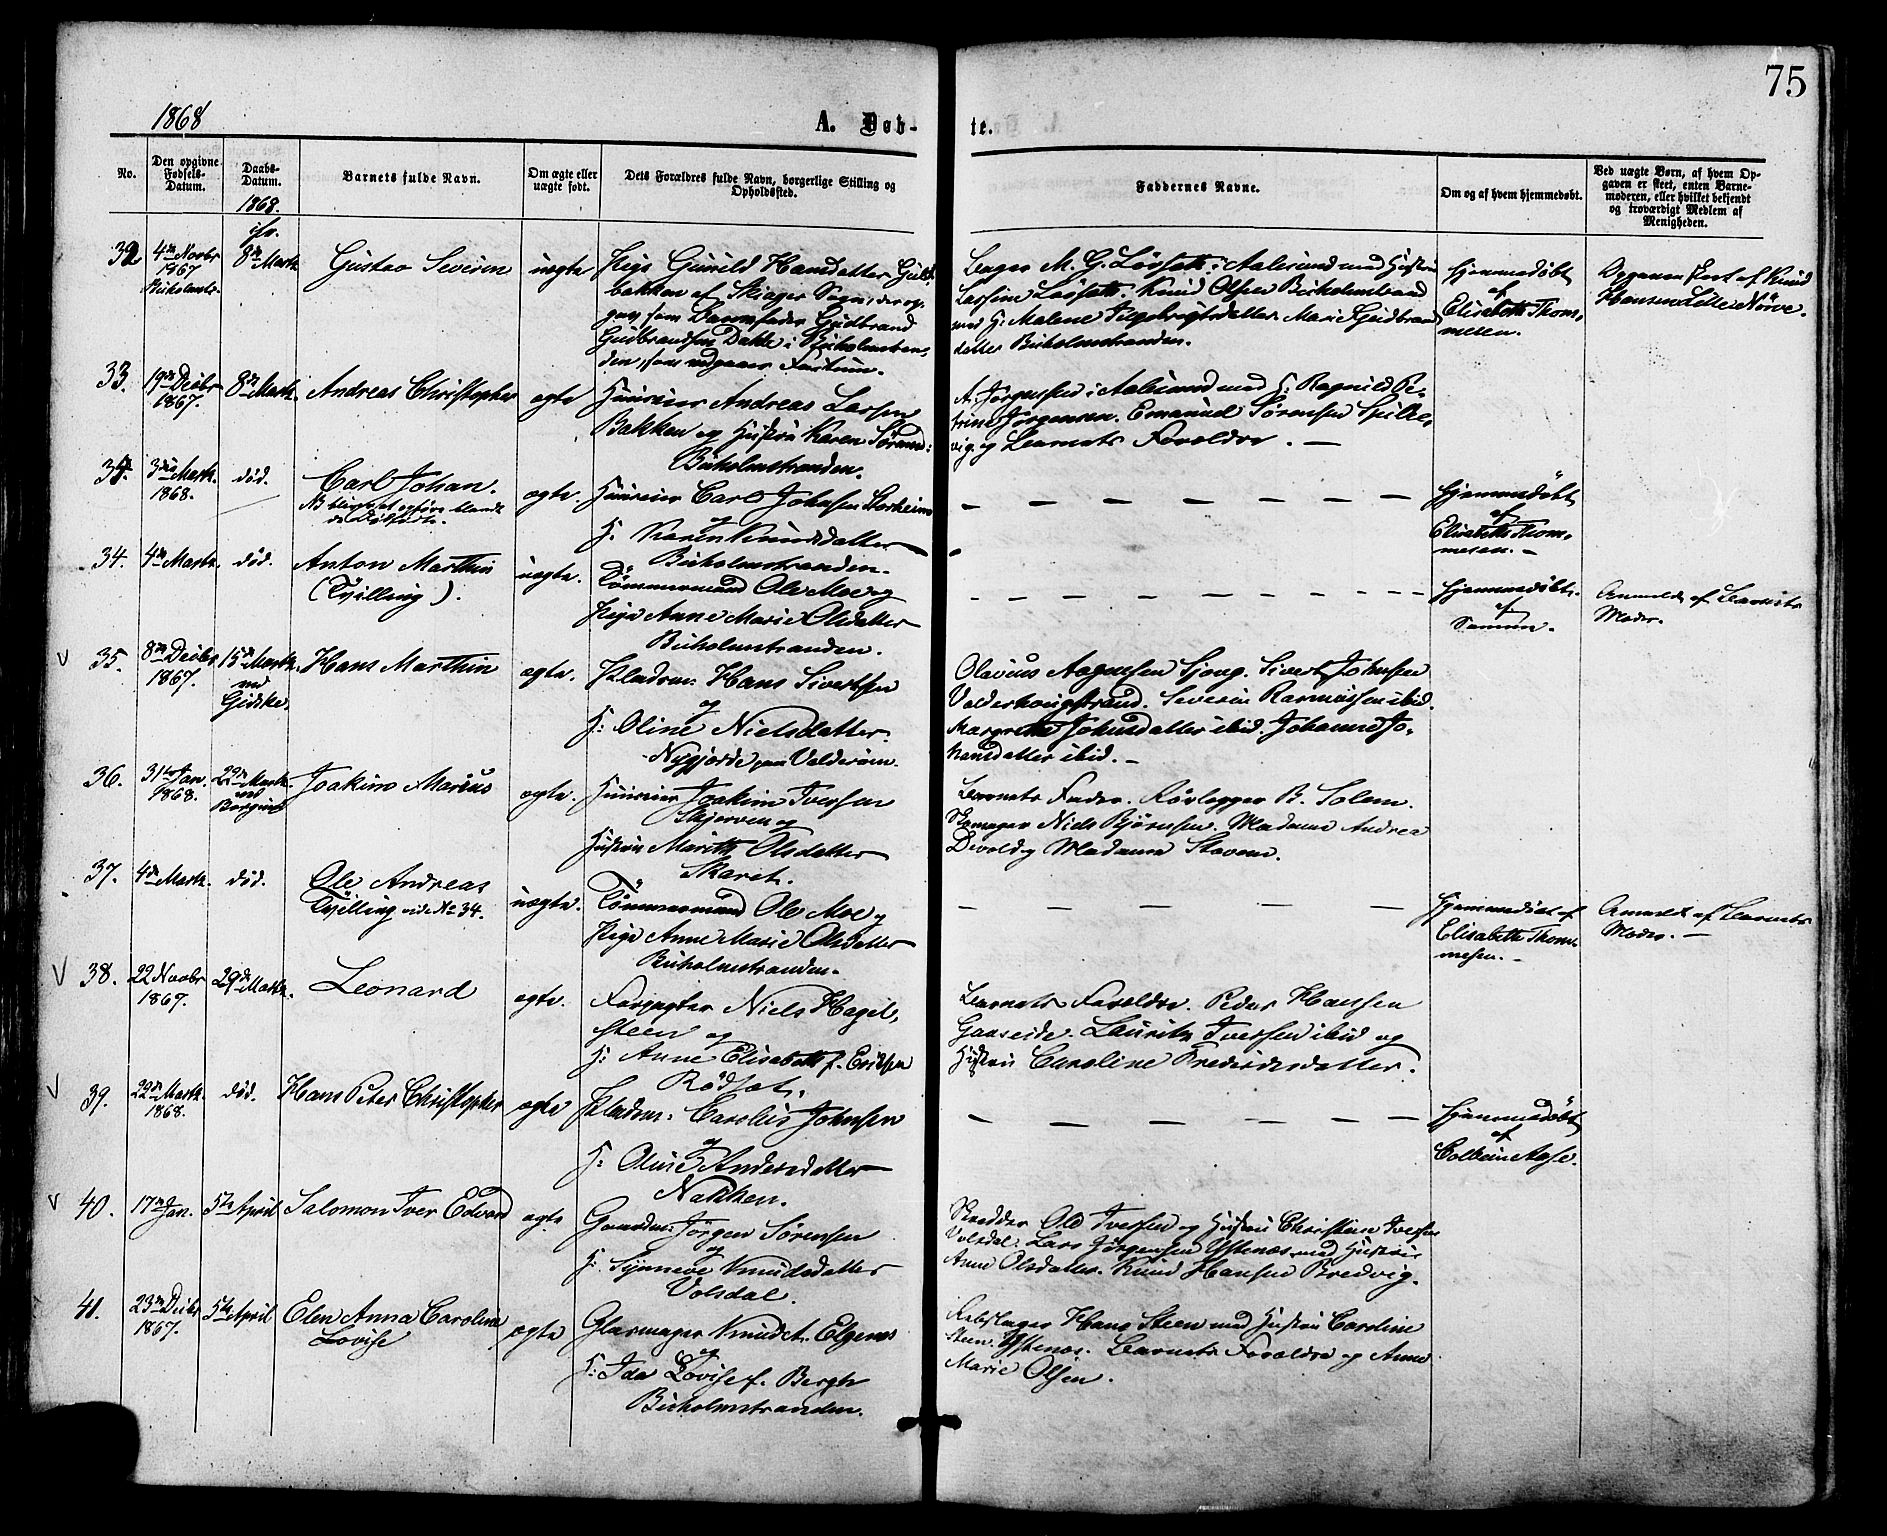 75
1868
A. Døb-
te.
No.
Den opgivne Fødsels-Datum.
Daabs-Datum.
1868.
Barnets fulde Navn.
Om ægte eller uægte født.
Dets Forældres fulde Navn, borgerlige Stilling og Opholdssted.
Faddernes Navne.
Om og af hvem hjemmedøbt.
Ved uægte Børn, af hvem Op-
gaven er skeet, enten Barne-
moderen, eller hvilket bekjendt
og troværdigt Medlem af
Menigheden.
32
4de Novbr
1867
8de Marts
Gustav Severin
uægte
Pige Gunild Hansdatter Guld-
bakken af Skiager Sogn, der op-
gav som Barnefader Gudbrand
Gudbrandsen Dahle i Buholmstran-
den, som udgaaer
M. G. Løvseth i Aalesund med Hustru
Løvseth. Knud Olsen Buholmstrand
med H: Malene
datter Buholmstranden.
Hjemmedøbt
af
Elisabeth Thom-
mesen.
Opgaven skeet af Knud
Hansen Lille Nørve.
33.
19de Decbr
1867.
8de Marts.
Andreas Christopher
ægte
Huuseier Andreas Larsen
Bakken og Hustru Karen
Buholmstranden.
A. Jørgensen i Aalesund med H: Ragnild Pe-
trine Jørgensen. Emanuel Sørensen Spille-
vig og Barnets Forældre. —
3die Marts.
1868.
død.
Carl Johan.
NB
ægte.
Huusier Carl Johnsen
og
H. Karen Knudsdatter
Buholmstranden.
Hjemmedøbt
af
Elisabeth Thom-
mesen. —
34.
4de Marts.
død.
Anton Marthin
(Tvilling).
uægte.
Tømmermand Ole Moe og
Pige Anne Marie Olsdatter
Buholmstranden.
Hjemmedøbt.
af
Samme.
Anmeldt af Barnets
Moder.
35.
8de Decbr
1867.
15de Marts.
ved
Gidske.
Hans Marthin
ægte.
Pladsm: Hans Sivertsen
og
H: Oline Nielsdatter
Nygjerde paa Valderøen.
Olavius Aagesen Gjong. Sivert Johnsen
Valderhougstrand. Severin Rasmussen ibid.
Margrethe Johnsdatter ibid. Johanne Jo-
hansdatter ibid. —
36.
31te Jan.
1868.
22de Marts.
ved
Borgund
Joakim Marius
ægte.
Huusier Joakim Iversen
Skjerven og
Hustru Marith Olsdatter
Skaret.
Barnets Fader. Rørlægger B. Solem.
Skomager Niels Bjørnsen. Madame Andrea
Devold og Madame Stavem.
37.
4de Marts.
død.
Ole Andreas
Tvilling vide No 34.
uægte.
Tømmermand Ole Moe og
Pige Anne Marie Olsdatter
Buholmstranden.
Hjemmedøbt af
Elisabeth Thom-
mesen. —
Anmeldt af Barnets
Moder. —
38.
22 Novbr
1867.
29de Marts.
Leonard
ægte.
Forpagter Niels Hagel-
steen og
H: Anne Elisabeth f. Eriksen
Rødsæt.
Barnets Forældre. Peder Hansen
Gaaseide. Lauritz Iversen ibid og
Hustru Caroline Fredriksdatter.
39.
22de Marts.
1868.
død.
Hans Peter Christopher
ægte
Pladsm: Carolus Johnsen
og
H: Oline Andersdatter
Nakken.
Hjemmedøbt
af
Colbein Aase.
40.
17de Jan.
5te April
Salomon Iver Edvard
ægte
Gaardm: Jørgen Sørensen
og
H. Synneve Knudsdatter
Volsdal.
Skredder Ole Iversen og Hustru Christine Iversen
Volsdal. Lars Jørgensen Ystenæs med Hustru
Anne Olsdatter. Knud Hansen Bredvig.
41.
23de Decbr
1867.
5te April
Elen Anna Caroline
Lovise
ægte
Glarmager Knud T. Elgenes
og
H: Ida Lovise f. Bergh
Buholmstranden.
Rebslager Hans Steen med Hustru Caroline
Steen Ystenæs. Barnets Forældre og Anne
Marie Olsen.